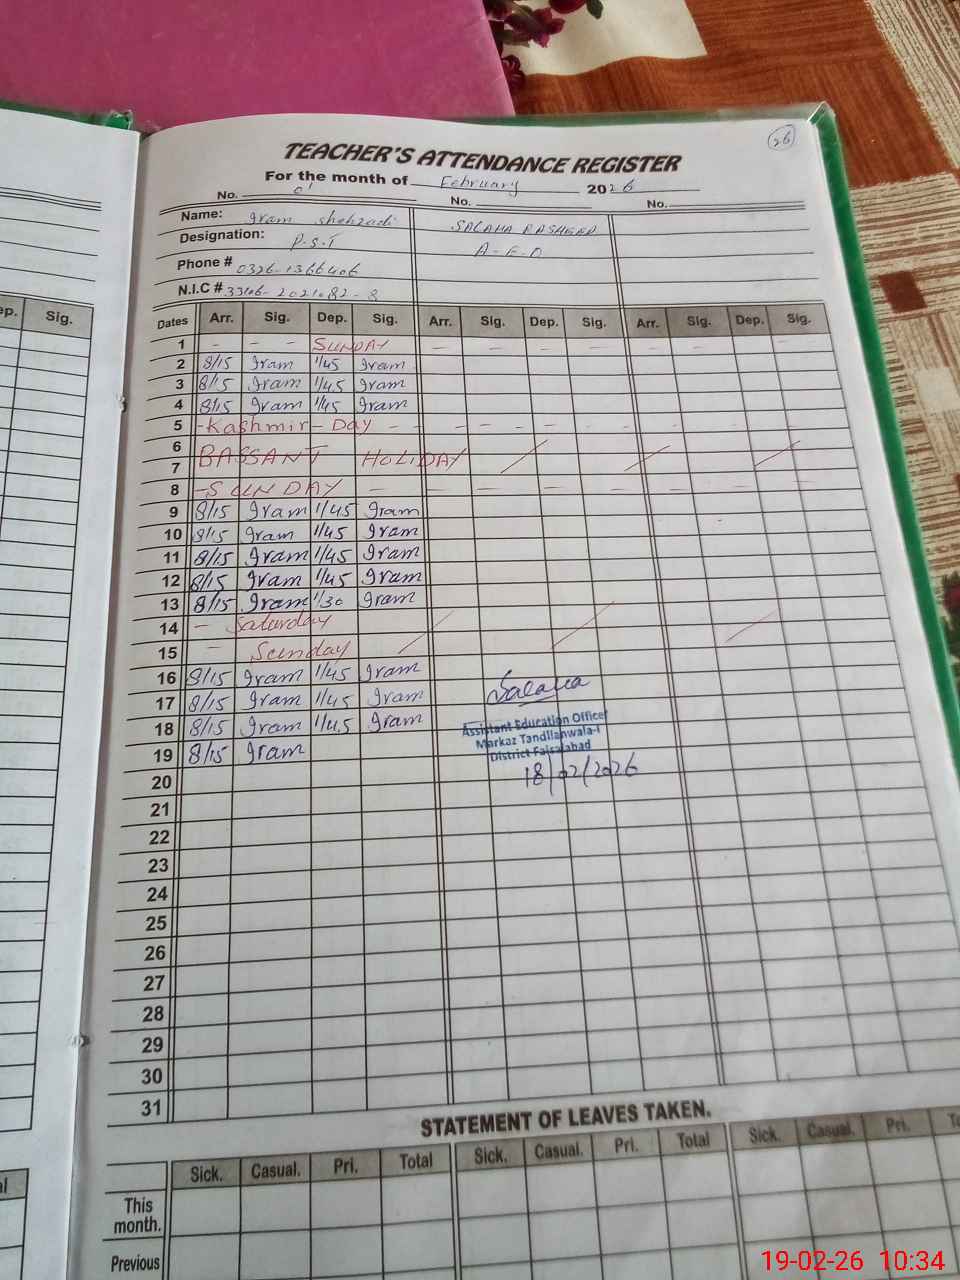 26
TEACHER'S ATTENDANCE REGISTER
For the month of February 2026
No. 01 No. No.
Name: Iram Shehzadi SALAHA RASHEED
Designation: P.S.T A-E-O
Phone # 0326-1366406
N.I.C #
Dates Arr. Sig. Dep. Sig. Arr. Sig. Dep. Sig. Arr. Sig. Dep. Sig.
1 - - - SUNDAY - - - - - - - -
2 8/15 Iram 1/45 Iram
3 8/15 Iram 1/45 Iram
4 8/15 Iram 1/45 Iram
5 -Kashmir- Day - - - - - - - - -
6
7 BASSANT HOLIDAY
8 -SUNDAY - - - - - - - - -
9 8/15 Iram 1/45 Iram
10 8/15 Iram 1/45 Iram
11 8/15 Iram 1/45 Iram
12 8/15 Iram 1/45 Iram
13 8/15 Iram 1/30 Iram
14 - Saturday
15 - Sunday
16 8/15 Iram 1/45 Iram
17 8/15 Iram 1/45 Iram
18 8/15 Iram 1/45 Iram
19 8/15 Iram
Salaha
Assistant Education Officer
Markaz Tandlianwala-I
District Faisalabad
18/02/2026
20
21
22
23
24
25
26
27
28
29
30
31
STATEMENT OF LEAVES TAKEN.
Sick. Casual. Pri. Total Sick. Casual. Pri. Total Sick. Casual. Pri.
This
month.
Previous
ep. Sig.
19-02-26 10:34